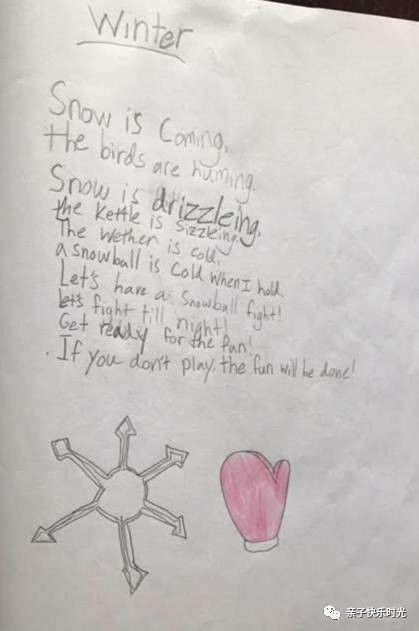 Winter
Snow is Coming,
the birds are huming.
Snow is drizzleing,
the kettle is sizzleing.
The wether is cold.
a snowball is cold when I hold.
Let's have a snowball fight!
let's fight till night!
Get ready for the fun!
. If you don't play, the fun will be done!
亲子快乐时光